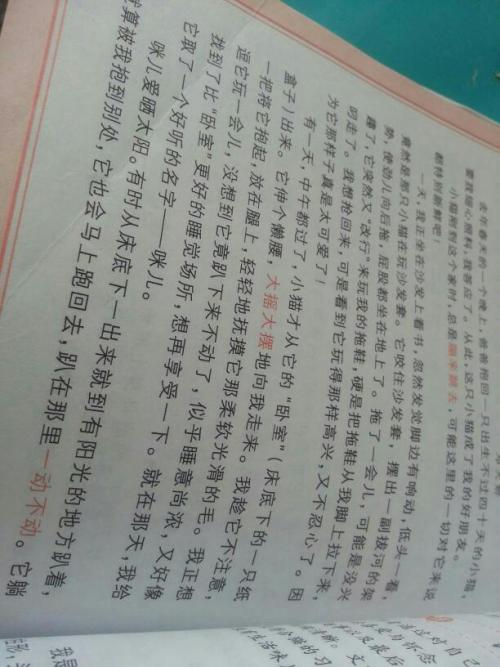 去年春天的一个晚上，爸爸抱回一只出生不过四十天的小猫，
要我细心照料，我答应了。从此，这只小猫成了我的好朋友。
小猫刚到这个家时，总是蹦来跳去，可能这里的一切对它来说
都特别新鲜吧！
一天，我正坐在沙发上看书，忽然发觉脚边有响动，低头一看，
竟然是那只小猫在玩沙发套。它咬住沙发套，摆出一副拔河的架
势，使劲儿向后拖，屁股都坐在地上了。拖了一会儿，可能是没兴
趣了，它突然又“改行”来玩我的拖鞋，硬是把拖鞋从我脚上拉下来，
叼走了。我想抢回来，可是看到它玩得那样高兴，又不忍心了。因
为它那样子真是太可爱了！
有一天，中午都过了，小猫才从它的“卧室”（床底下的一只纸
盒子）出来。它伸个懒腰，大摇大摆地向我走来。我趁它不注意，
一把将它抱起，放在腿上，轻轻地抚摸它那柔软光滑的毛。我正想
逗它玩一会儿，没想到它竟趴下来不动了，似乎睡意尚浓，又好像
找到了比“卧室”更好的睡觉场所，想再享受一下。就在那天，我给
它取了一个好听的名字——咪儿。
咪儿爱晒太阳。有时从床底下一出来就到有阳光的地方趴着，
就算被我抱到别处，它也会马上跑回去，趴在那里一动不动。它躺